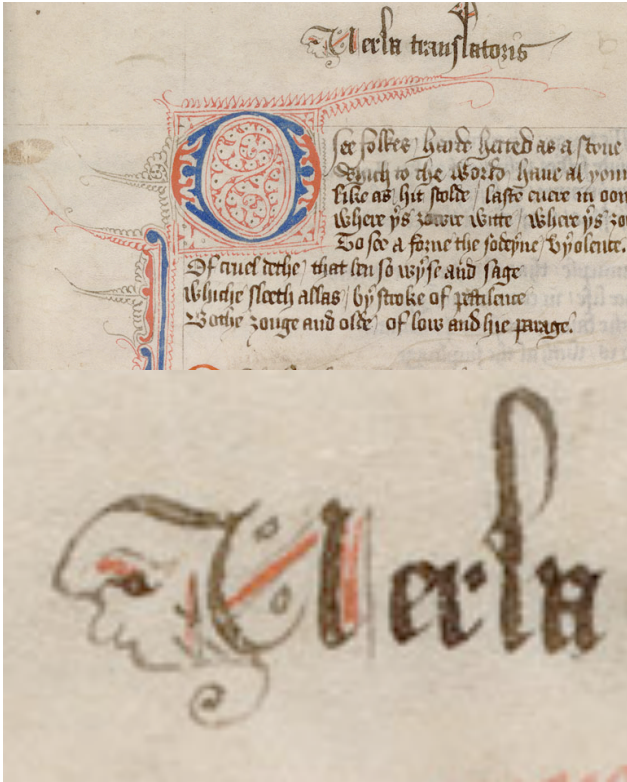 Uerba translatoris
O ȝee folkes / harde herted as a stone
Which to the world haue al your
Like as hit sholde / laste euere in oon
Where ys ȝowre witte / where ys ȝo
To see a forne the sodeyne / vyolence.
Of cruel dethe / that ben so wyse and sage
Whiche sleeth allas / by stroke of pestilence
Bothe ȝonge and olde / of low and hie parage.
Uerba